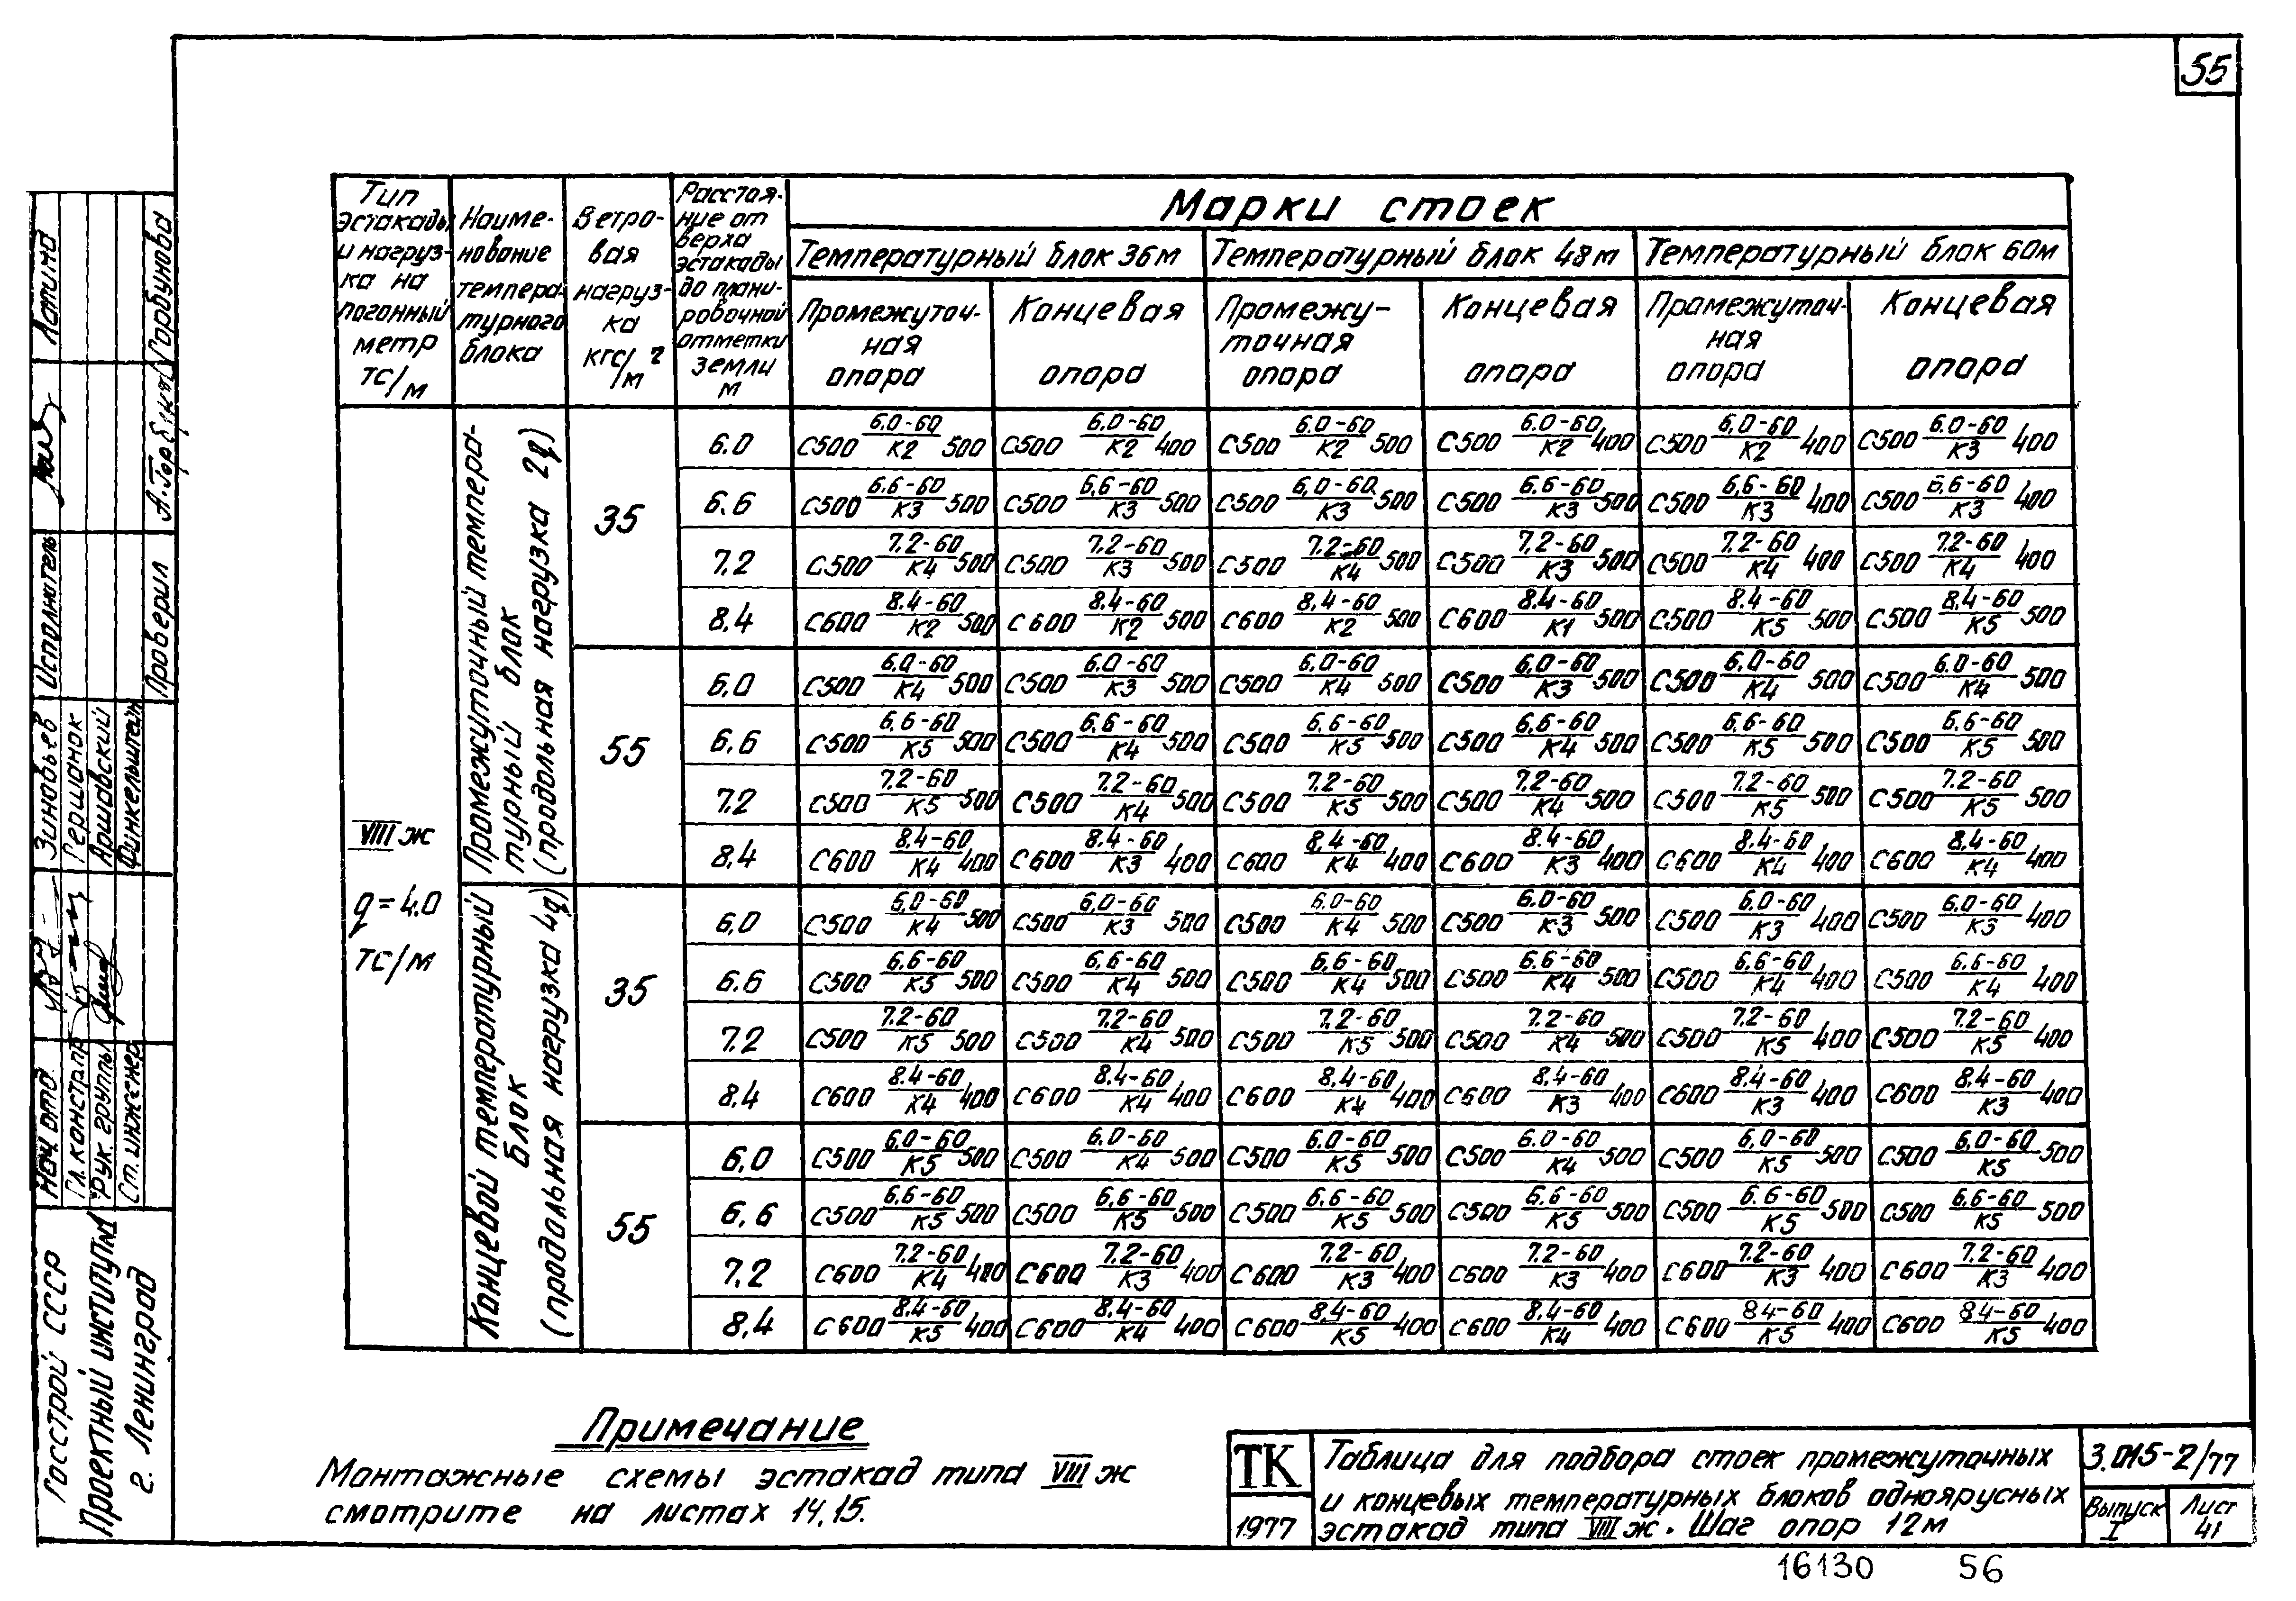 55
Марки стоек
Тип эстакады и нагрузка на погонный метр тс/м
Наименование температурного блока
Ветровая нагрузка кгс/м²
Расстояние от верха эстакады до планировочной отметки земли м
Температурный блок 36м
Температурный блок 48м
Температурный блок 60м
Промежуточная опора
Концевая опора
Промежуточная опора
Концевая опора
Промежуточная опора
Концевая опора
VIII ж
q=4.0
тс/м
Промежуточный температурный блок (продольная нагрузка 2q)
35
6.0 С500 6.0-60/К2 500 С500 6.0-60/К2 400 С500 6.0-60/К2 500 С500 6.0-60/К2 400 С500 6.0-60/К2 400 С500 6.0-60/К3 400
6.6 С500 6.6-60/К3 500 С500 6.6-60/К3 500 С500 6.0-60/К3 500 С500 6.6-60/К3 500 С500 6.6-60/К3 400 С500 6.6-60/К3 400
7.2 С500 7.2-60/К4 500 С500 7.2-60/К3 500 С500 7.2-60/К4 500 С500 7.2-60/К3 500 С500 7.2-60/К4 400 С500 7.2-60/К4 400
8.4 С600 8.4-60/К2 500 С600 8.4-60/К2 500 С600 8.4-60/К2 500 С600 8.4-60/К1 500 С500 8.4-60/К5 500 С500 8.4-60/К5 500
55
6.0 С500 6.0-60/К4 500 С500 6.0-60/К3 500 С500 6.0-60/К4 500 С500 6.0-60/К3 500 С500 6.0-60/К4 500 С500 6.0-60/К4 500
6.6 С500 6.6-60/К5 500 С500 6.6-60/К4 500 С500 6.6-60/К5 500 С500 6.6-60/К4 500 С500 6.6-60/К5 500 С500 6.6-60/К5 500
7.2 С500 7.2-60/К5 500 С500 7.2-60/К4 500 С500 7.2-60/К5 500 С500 7.2-60/К4 500 С500 7.2-60/К5 500 С500 7.2-60/К5 500
8.4 С600 8.4-60/К4 400 С600 8.4-60/К3 400 С600 8.4-60/К4 400 С600 8.4-60/К3 400 С600 8.4-60/К4 400 С600 8.4-60/К4 400
Концевой температурный блок (продольная нагрузка 4q)
35
6.0 С500 6.0-60/К4 500 С500 6.0-60/К3 500 С500 6.0-60/К4 500 С500 6.0-60/К3 500 С500 6.0-60/К3 400 С500 6.0-60/К3 400
6.6 С500 6.6-60/К5 500 С500 6.6-60/К4 500 С500 6.6-60/К4 500 С500 6.6-60/К4 500 С500 6.6-60/К4 400 С500 6.6-60/К4 400
7.2 С500 7.2-60/К5 500 С500 7.2-60/К4 500 С500 7.2-60/К5 500 С500 7.2-60/К4 500 С500 7.2-60/К5 400 С500 7.2-60/К5 400
8.4 С600 8.4-60/К4 400 С600 8.4-60/К4 400 С600 8.4-60/К4 400 С600 8.4-60/К3 400 С600 8.4-60/К3 400 С600 8.4-60/К3 400
55
6.0 С500 6.0-60/К5 500 С500 6.0-60/К4 500 С500 6.0-60/К5 500 С500 6.0-60/К4 500 С500 6.0-60/К5 500 С500 6.0-60/К5 500
6.6 С500 6.6-60/К5 500 С500 6.6-60/К5 500 С500 6.6-60/К5 500 С500 6.6-60/К5 500 С500 6.6-60/К5 500 С500 6.6-60/К5 500
7.2 С600 7.2-60/К4 400 С600 7.2-60/К3 400 С600 7.2-60/К3 400 С600 7.2-60/К3 400 С600 7.2-60/К3 400 С600 7.2-60/К3 400
8.4 С600 8.4-60/К5 400 С600 8.4-60/К4 400 С600 8.4-60/К5 400 С600 8.4-60/К4 400 С600 8.4-60/К5 400 С600 8.4-60/К5 400
Примечание
Монтажные схемы эстакад типа VIII ж
смотрите на листах 14,15.
ТК
1977
Таблица для подбора стоек промежуточных
и концевых температурных блоков одноярусных
эстакад типа VIII ж. Шаг опор 12м
3.015-2/77
Выпуск I
Лист 41
16130 56
Госстрой СССР
Проектный институт №1
г. Ленинград
Нач. отд. Зиновьев
Гл. констр. пр. Гершанок
Рук. группы Аршавский
Ст. инженер Финкельштейн
Исполнитель Лапина
Проверил А. Горбунова Горбунова